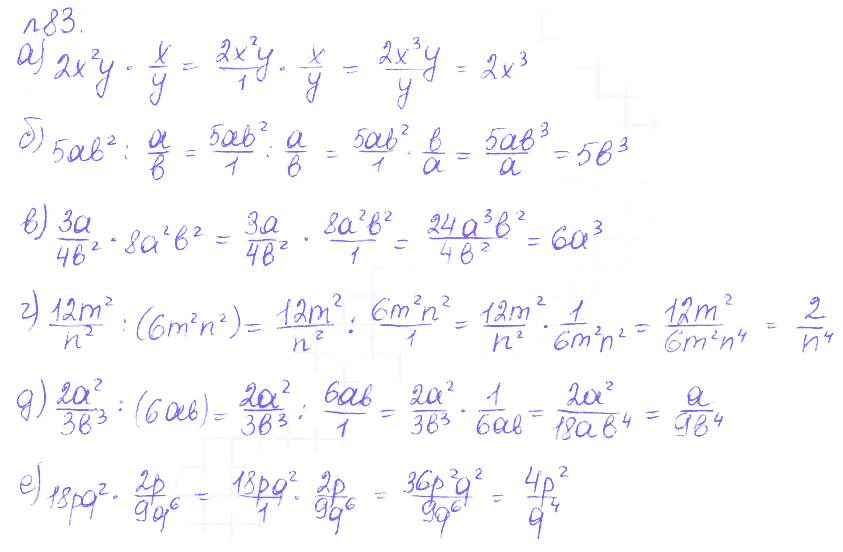 №83.
а) 2x²y · x/y = 2x²y/1 · x/y = 2x³y/y = 2x³
б) 5ab² : a/b = 5ab²/1 : a/b = 5ab²/1 · b/a = 5ab³/a = 5b³
в) 3a/4b² · 8a²b² = 3a/4b² · 8a²b²/1 = 24a³b²/4b² = 6a³
г) 12m²/n² : (6m²n²) = 12m²/n² : 6m²n²/1 = 12m²/n² · 1/6m²n² = 12m²/6m²n⁴ = 2/n⁴
д) 2a²/3b³ : (6ab) = 2a²/3b³ : 6ab/1 = 2a²/3b³ · 1/6ab = 2a²/18ab⁴ = a/9b⁴
е) 18pq² · 2p/9q⁶ = 18pq²/1 · 2p/9q⁶ = 36p²q²/9q⁶ = 4p²/q⁴